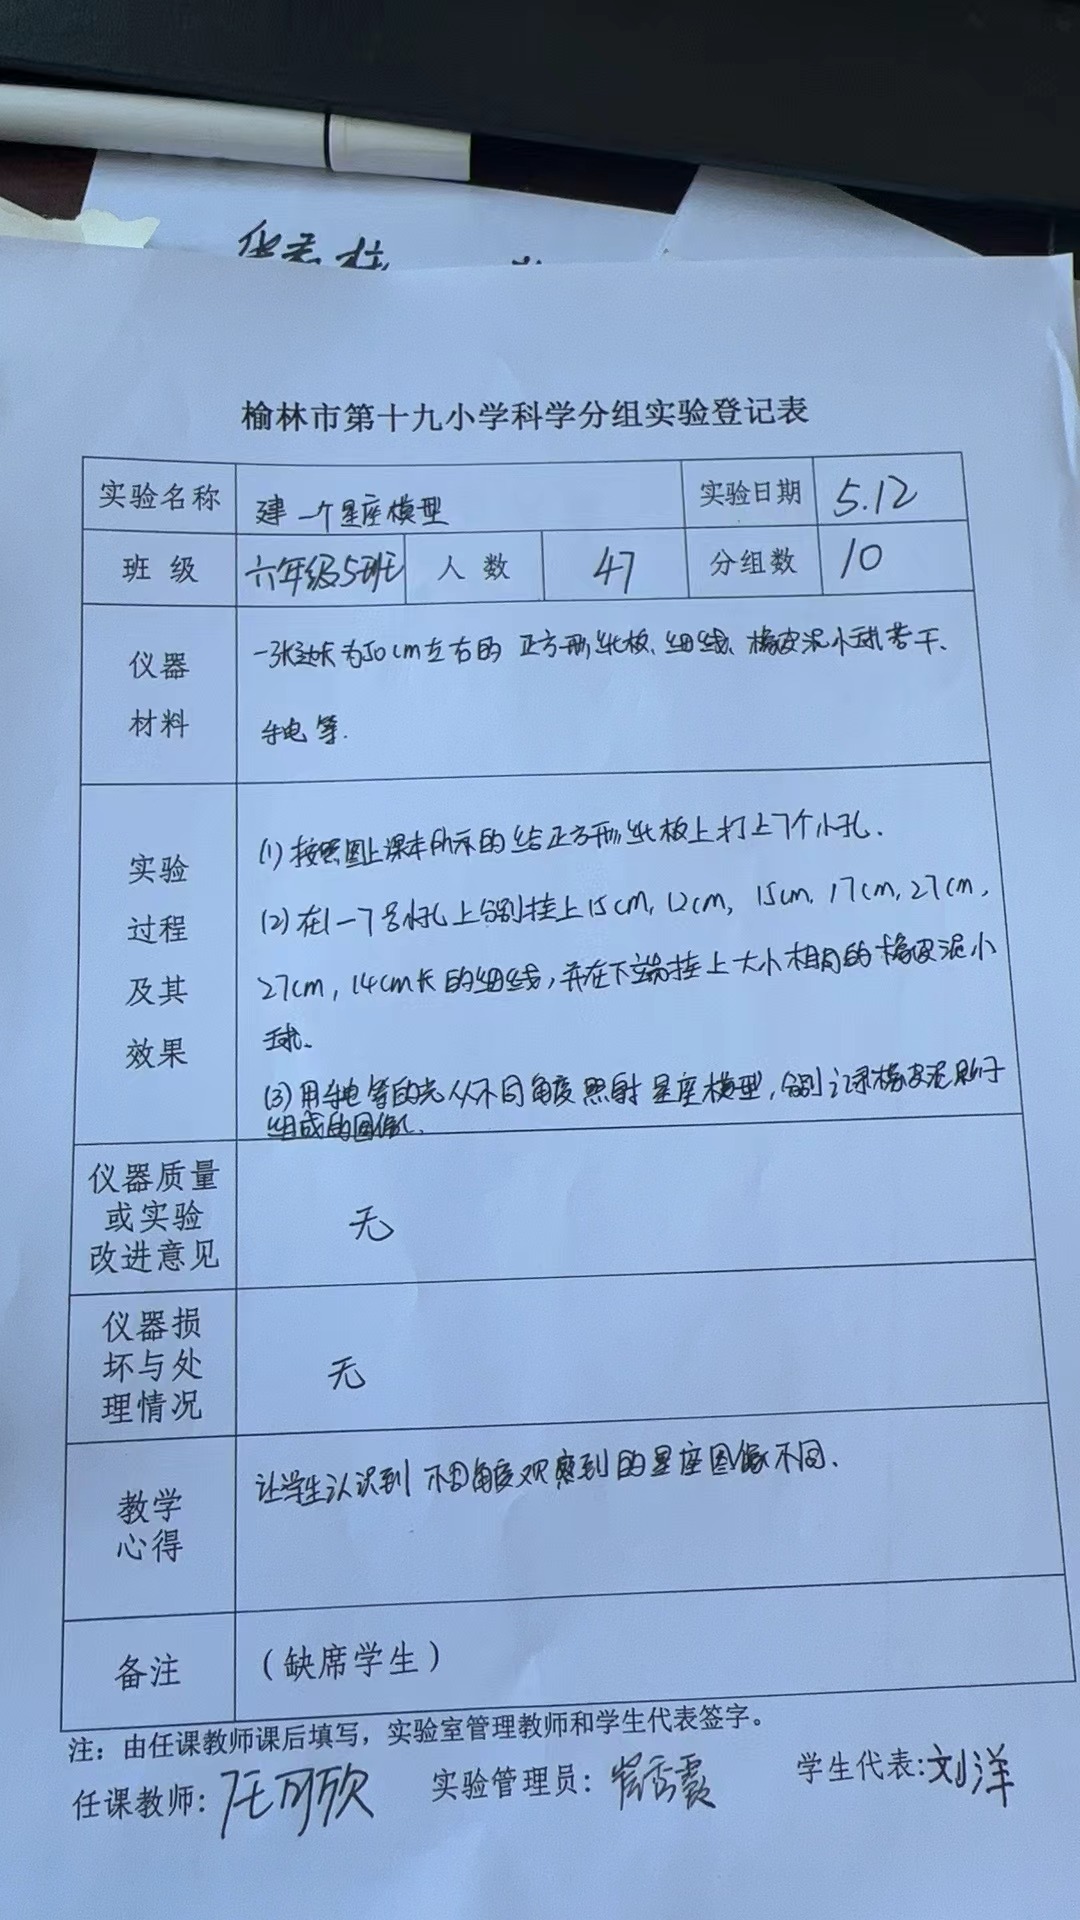 榆林市第十九小学科学分组实验登记表
实验名称 建一个星座模型 实验日期 5.12
班级 六年级5班 人数 47 分组数 10
仪器
材料
一张边长为50cm左右的正方形纸板、细线、橡皮泥小球若干、
手电等.
实验
过程
及其
效果
(1)按照图上课本所示的给正方形纸板上打上7个小孔.
(2)在1一7号小孔上分别挂上15cm,12cm,15cm,17cm,27cm,
27cm,14cm长的细线,并在下端挂上大小相同的橡皮泥小
球.
(3)用手电等的光从不同角度照射星座模型,分别记录橡皮泥影子
组成的图像.
仪器质量
或实验
改进意见
无
仪器损
坏与处
理情况
无
教学
心得
让学生认识到不同角度观察到的星座图像不同.
备注 (缺席学生)
注：由任课教师课后填写，实验室管理教师和学生代表签字。
任课教师: 任可欣 实验管理员: 秀霞 学生代表:刘洋